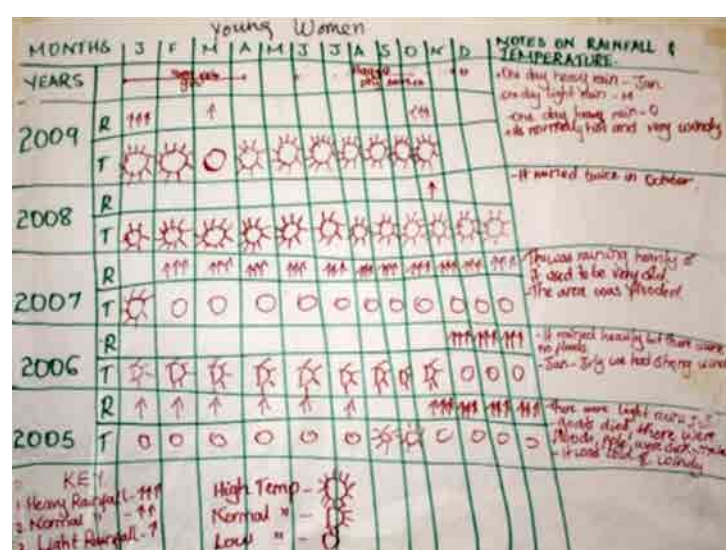 Young Women
MONTHS J F M A M J J A S O N D NOTES ON RAINFALL &
TEMPERATURE.
YEARS
2009 R
T
2008 R
T
2007 R
T
2006 R
T
2005 R
T
- One day heavy rain - Jan.
one day light rain - M
- one day heavy rain - O
normally hot and very windy
- It rained twice in October.
was raining heavily &
it used to be very cold
- The area was flooded.
- It rained heavily but there were
no floods.
- Jan - July we had strong wind
- There were light rains J-J.
Goats died, there were
floods, were sick
- It was cold & windy
KEY
1 Heavy Rainfall -
2 Normal " -
3 Light Rainfall -
High Temp -
Normal " -
Low " -